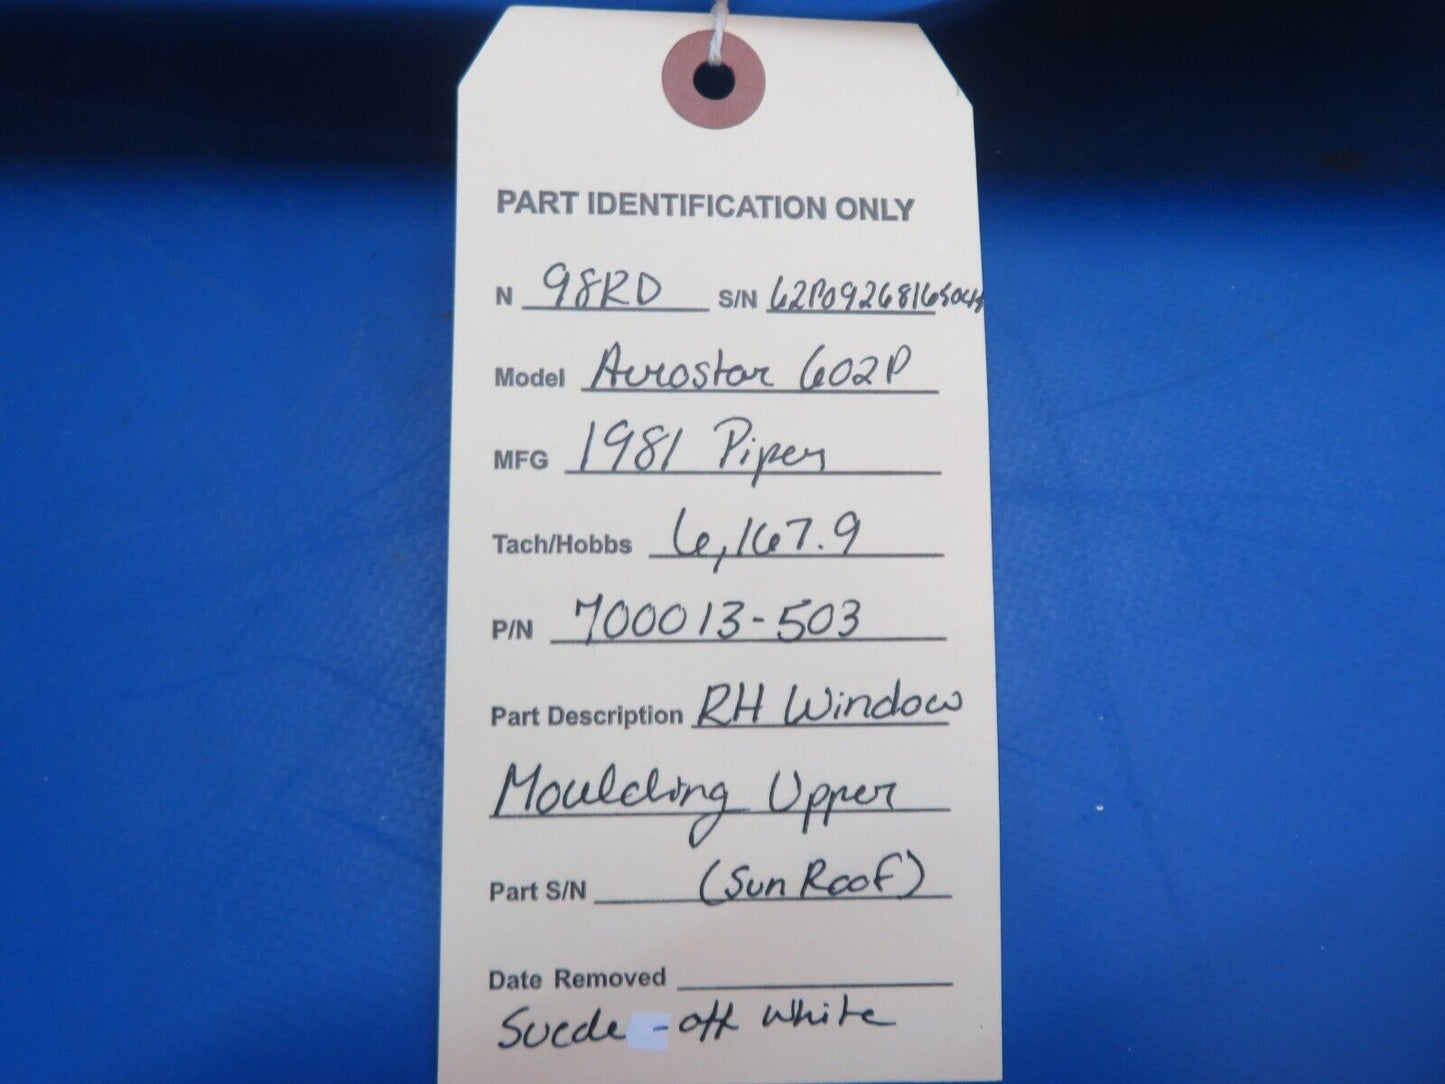 PART IDENTIFICATION ONLY
N 98RD S/N 62P09268165044
Model Aerostar 602P
MFG 1981 Piper
Tach/Hobbs 6,167.9
P/N 700013-503
Part Description RH Window
Moulding Upper
Part S/N (Sun Roof)
Date Removed
Suede - off white